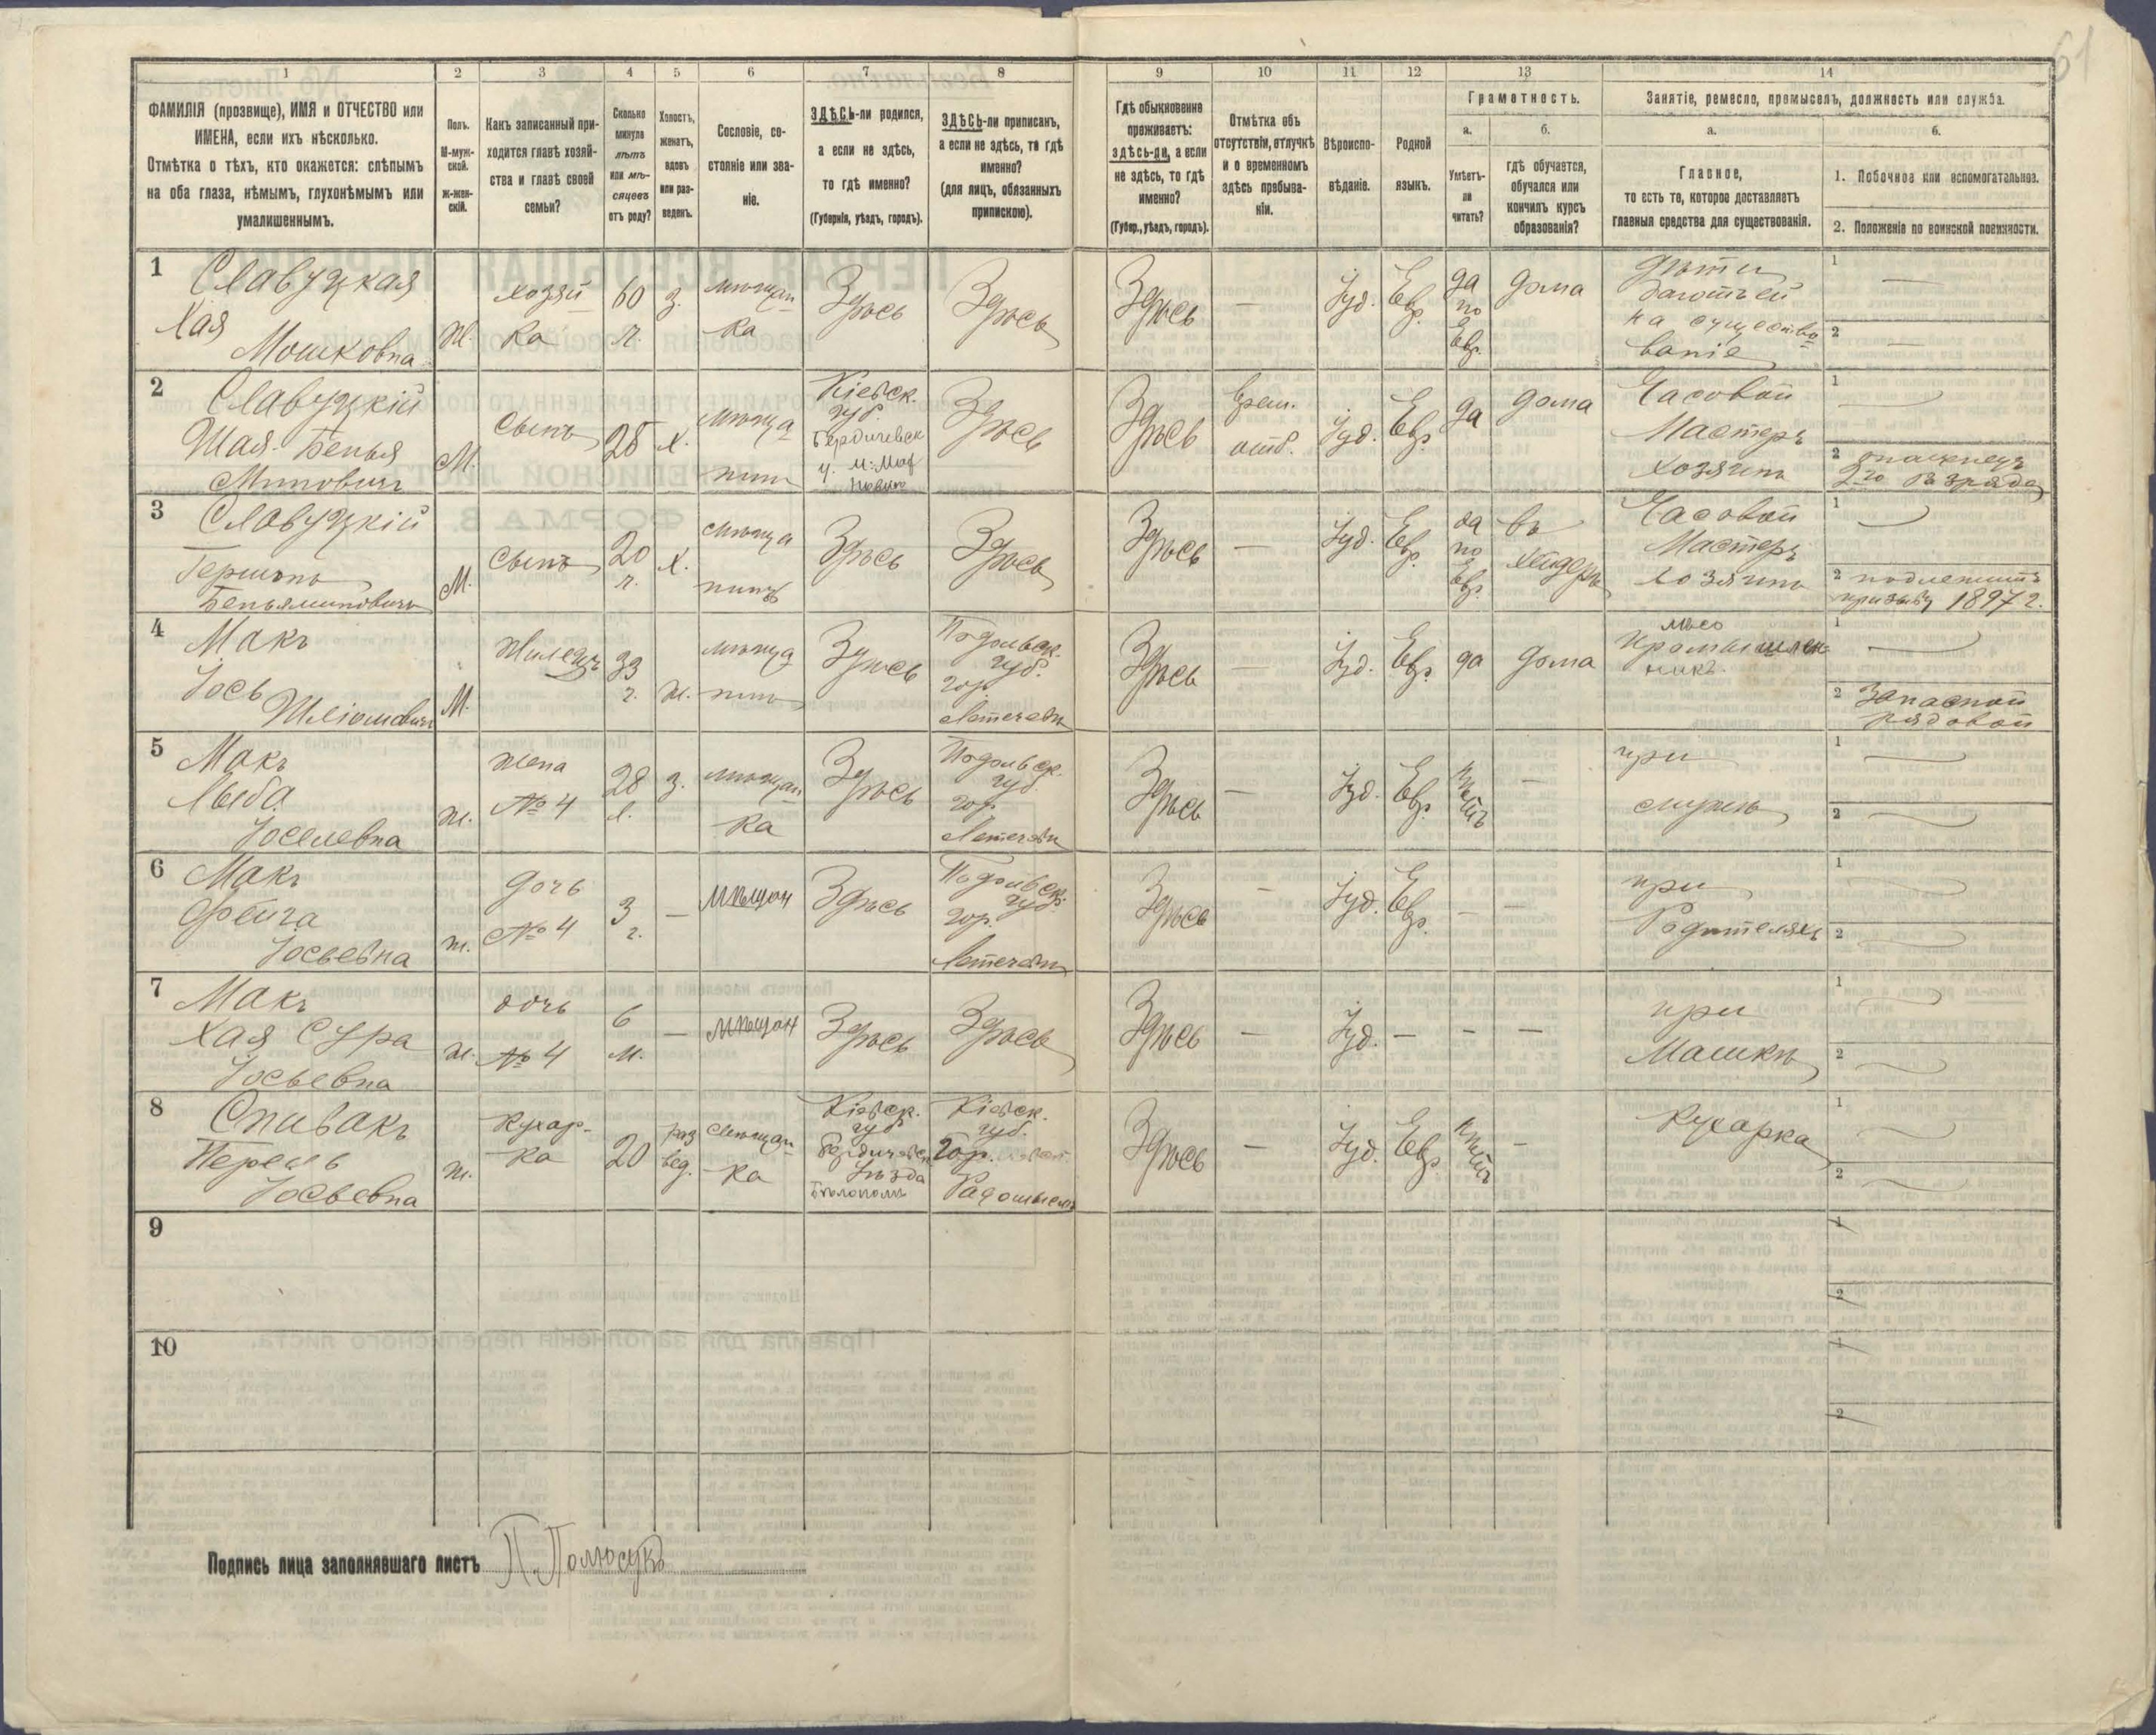 61
1 2 3 4 5 6 7 8 9 10 11 12 13 14
ФАМИЛІЯ (прозвище), ИМЯ и ОТЧЕСТВО или
ИМЕНА, если ихъ нѣсколько.
Отмѣтка о тѣхъ, кто окажется: слѣпымъ
на оба глаза, нѣмымъ, глухонѣмымъ или
умалишеннымъ.
Полъ.
М-муж-
ской.
Ж-жен-
скій.
Какъ записанный при-
ходится главѣ хозяй-
ства и главѣ своей
семьи?
Сколько
минуло
лѣтъ
или мѣ-
сяцевъ
отъ роду?
Холостъ,
женатъ,
вдовъ
или раз-
веденъ.
Сословіе, со-
стояніе или зва-
ніе.
ЗДѢСЬ-ли родился,
а если не здѣсь,
то гдѣ именно?
(Губернія, уѣздъ, городъ).
ЗДѢСЬ-ли приписанъ,
а если не здѣсь, то гдѣ
именно?
(для лицъ, обязанныхъ
припискою).
Гдѣ обыкновенно
проживаетъ:
здѣсь-ли, а если
не здѣсь, то гдѣ
именно?
(Губер., уѣздъ, городъ).
Отмѣтка объ
отсутствіи, отлучкѣ
и о временномъ
здѣсь пребыва-
ніи.
Вѣроиспо-
вѣданіе.
Родной
языкъ.
Грамотность.
а.
Умѣетъ-
ли
читать?
б.
гдѣ обучается,
обучался или
кончилъ курсъ
образованія?
Занятіе, ремесло, промыселъ, должность или служба.
а.
Главное,
то есть то, которое доставляетъ
главныя средства для существованія.
б.
1. Побочное или вспомогательное.
2. Положеніе по воинской повинности.
1 Славуцкая
Хая
Мошковна
Ж.
хозяй
ка
60
л.
з.
мѣщан
ка
Здѣсь
Здѣсь
Здѣсь
—
Іуд.
Евр.
да
по
Евр.
дома
дѣти
на существо
ваніе
1 —
2 —
2 Славуцкій
Шая-Бенья
Миновичъ
М.
сынъ
28
х.
мѣща
нинъ
Кіевск.
губ.
Бердичевск
у.
Здѣсь
Здѣсь
врем.
отб.
Іуд.
Евр.
да
дома
Часовой
Мастеръ
хозяинъ
1 —
2 ополченецъ
2го разряда
3 Славуцкій
Гершонъ
Беньяминовичъ
М.
сынъ
20
л.
х.
мѣща
нинъ
Здѣсь
Здѣсь
Здѣсь
—
Іуд.
Евр.
да
по
Евр.
въ
хейдерѣ
Часовой
Мастеръ
хозяинъ
1 —
2 подлежитъ
призыву 1897 г.
4 Макъ
Іось
Шліомовичъ
М.
Жилецъ
33
г.
ж.
мѣща
нинъ
Здѣсь
Подольск.
губ.
гор.
Летичевъ
Здѣсь
—
Іуд.
Евр.
да
дома
мѣсо
промышлен
никъ.
1 —
2 Запасной
рядовой
5 Макъ
Лыба
Іоселевна
ж.
жена
№ 4
28
л.
з.
мѣщан
ка
Здѣсь
Подольск.
губ.
гор.
Летичевъ
Здѣсь
—
Іуд.
Евр.
нѣтъ
—
при
мужѣ
1 —
2 —
6 Макъ
Фейга
Іосьевна
ж.
дочь
№ 4
3
г.
—
мѣщан
Здѣсь
Подольск.
губ.
гор.
Летичевъ
Здѣсь
—
Іуд.
Евр.
—
—
при
Родителяхъ
1 —
2 —
7 Макъ
Хая Сура
Іосьевна
ж.
дочь
№ 4
6
м.
—
мѣщан
Здѣсь
Здѣсь
Здѣсь
—
Іуд.
—
—
—
при
Машкѣ
1 —
2 —
8 Спивакъ
Перель
Іосьевна
ж.
Кухар-
ка
20
раз
вед.
мѣщан
ка
Кіевск.
губ.
Бердичевск.
уѣзда
Бѣлополь
Кіевск.
губ.
гор.
Радомысль
Здѣсь
—
Іуд.
Евр.
нѣтъ
—
Кухарка
1 —
2 —
9
1
2
10
1
2
Подпись лица заполнявшаго листъ